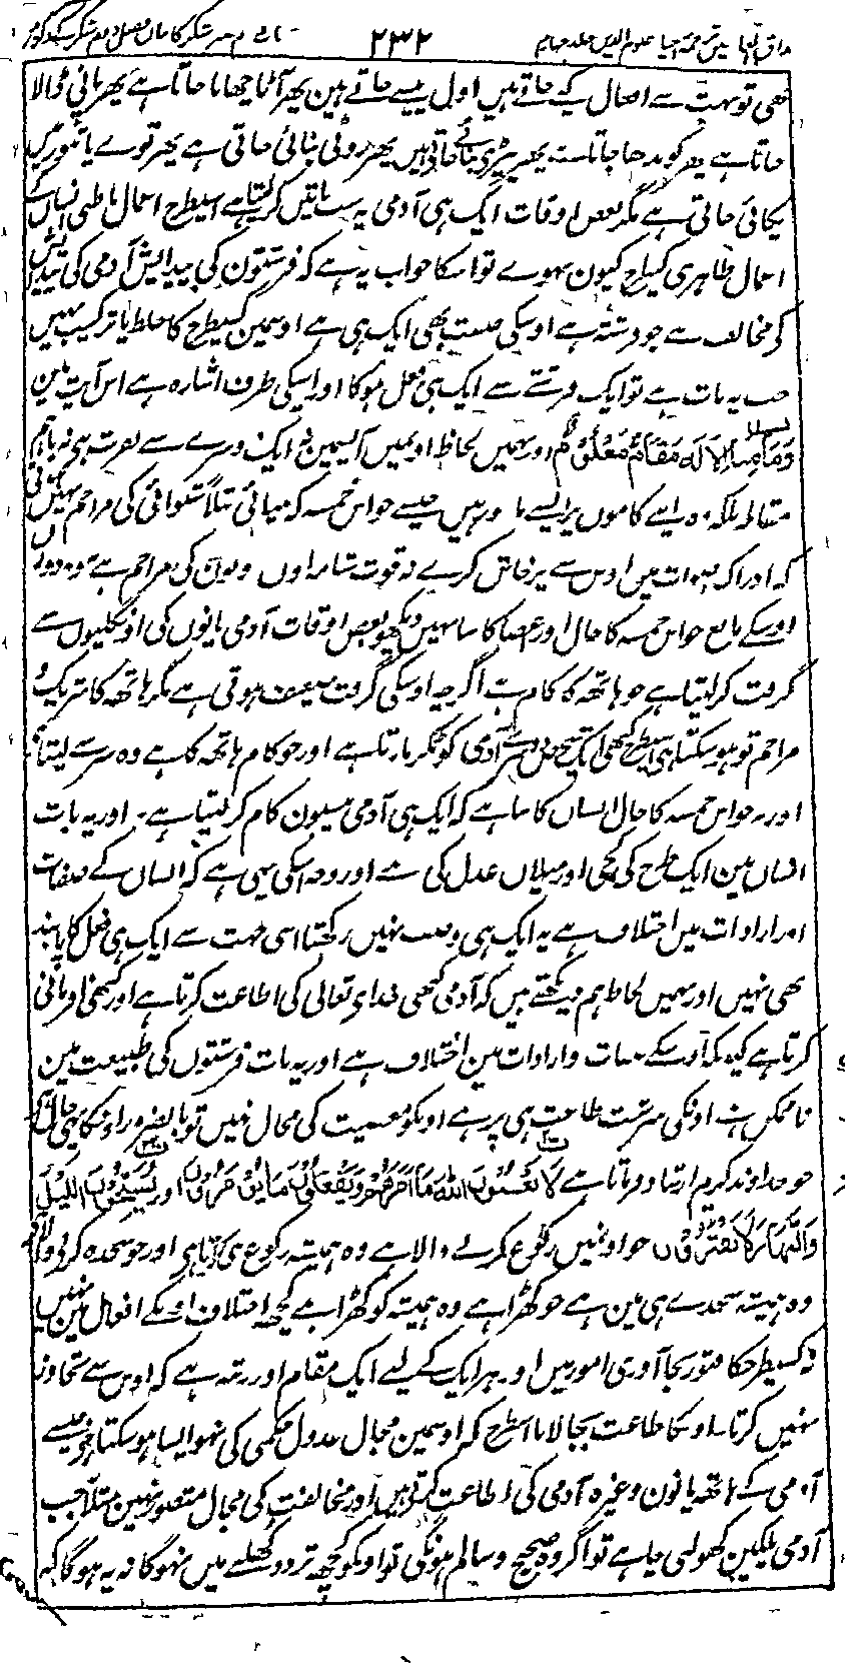 مذاق العارفین ترجمہ احیاء علوم الدین جلد چہارم ۲۳۲
بھی تو بہت سے افعال کیے جاتے ہیں اول پیسے جاتے ہین پھر آٹا چھانا جاتا ہے پھر پانی ڈالا
جاتا ہے پھر گوندھا جاتا ہے پھر پیڑے بنائے جاتے ہیں پھر روٹی بنائی جاتی ہے پھر توے یا تنور میں
پکائی جاتی ہے مگر بعض اوقات ایک ہی آدمی یہ سب باتیں کر لیتا ہے اسیطرح اعمال باطنی انسان کے
اعمال ظاہری کیطرح کیون نہوے تو اسکا جواب یہ ہے کہ فرشتون کی پیدایش آدمی کی پیدایش
کے مخالف ہے جو فرشتہ ہے اوسکی صفت بھی ایک ہی ہے اوسمین کسیطرح کا خلط یا ترکیب نہیں
جب یہ بات ہے تو ایک فرشتے سے ایک ہی فعل ہوگا اور اسیکی طرف اشارہ ہے اس آیت مین
وَمَا مِنَّا إِلَّا لَهُ مَقَامٌ مَعْلُومٌ اور بہمیں لحاظ اونمیں آپسمین نہ ایک دوسرے سے نفرت ہے نہ باہم
مقابلہ بلکہ وہ اپنے کاموں پر ایسے ہیں جیسے حواس خمسہ کہ بینائی مثلاً شنوائی کی مزاحم نہیں ہوتی
کہ ادراک اصوات میں اوس سے پرخاش کرے نہ قوت شامہ اون دونوں کی مزاحم ہے نہ وہ دونوں
اوسکے مانع حواس خمسہ کا حال اور اعضا کا سا نہیں دیکھو بعض اوقات آدمی پانوں کی اونگلیوں سے
گرفت کر لیتا ہے جو ہاتھ کا کام ہے اگرچہ اوسکی گرفت ضعیف ہوتی ہے مگر ہاتھ کا شریک و
مزاحم تو ہو سکتا ہے اسیطرح کبھی ایک شخص دوسرے آدمی کو ٹکر مارتا ہے اور جو کام ہاتھ کا ہے وہ سر سے لیتا
اور نہ حواس خمسہ کا حال انسان کا سا ہے کہ ایک ہی آدمی بیسیون کام کر لیتا ہے۔ اور یہ بات
انسان مین ایک طرح کی کجی اور میلان عدل کی ہے اور وجہ اسکی یہی ہے کہ انسان کے صفات
اور ارادات میں اختلاف ہے یہ ایک ہی وصف نہیں رکھتا اسی جہت سے ایک ہی فعل کا پابند
بھی نہیں اور بہمیں لحاظ ہم دیکھتے ہیں کہ آدمی کبھی خدا تعالی کی اطاعت کرتا ہے اور کبھی نافرمانی
کرتا ہے کیونکہ اوسکے صفات و ارادات مین اختلاف ہے اور یہ بات فرشتوں کی طبیعت مین
ناممکن ہے اونکی سرشت طاعت ہی پر ہے اونکو معصیت کی مجال نہیں تو بالضرور اونکا یہی حال ہے
جو خداوند کریم ارشاد فرماتا ہے لَا يَعْصُونَ اللهَ مَا أَمَرَهُمْ وَيَفْعَلُونَ مَا يُؤْمَرُونَ اور يُسَبِّحُونَ اللَّيْلَ
وَالنَّهَارَ لَا يَفْتُرُونَ جو اونمیں رکوع کرنے والا ہے وہ ہمیشہ رکوع ہی کرتا ہے اور جو سجدہ کرنیوالا ہے
وہ ہمیشہ سجدے ہی مین ہے جو کھڑا ہے وہ ہمیشہ کو کھڑا ہے کچھ اختلاف اونکے افعال مین نہیں
نہ کسیطرحکا فتور بجاآوری امور میں اور ہر ایک کے لیے ایک مقام اور رتبہ ہے کہ اوس سے تجاوز
نہیں کرتا اونکا طاعت بجا لانا اسطرح کہ اوسمین مجال عدول حکمی کی نہو ایسا ہو سکتا ہے جیسے
آدمی کے ہاتھ پانون وغیرہ آدمی کی اطاعت کرتے ہیں اور مخالفت کی مجال متصور نہین مثلاً جب
آدمی پلکین کھولنی چاہے تو اگر وہ صحیح و سالم ہونگی تو اونکو کچھ تردد کھلنے میں نہوگا نہ یہ ہوگا کہ